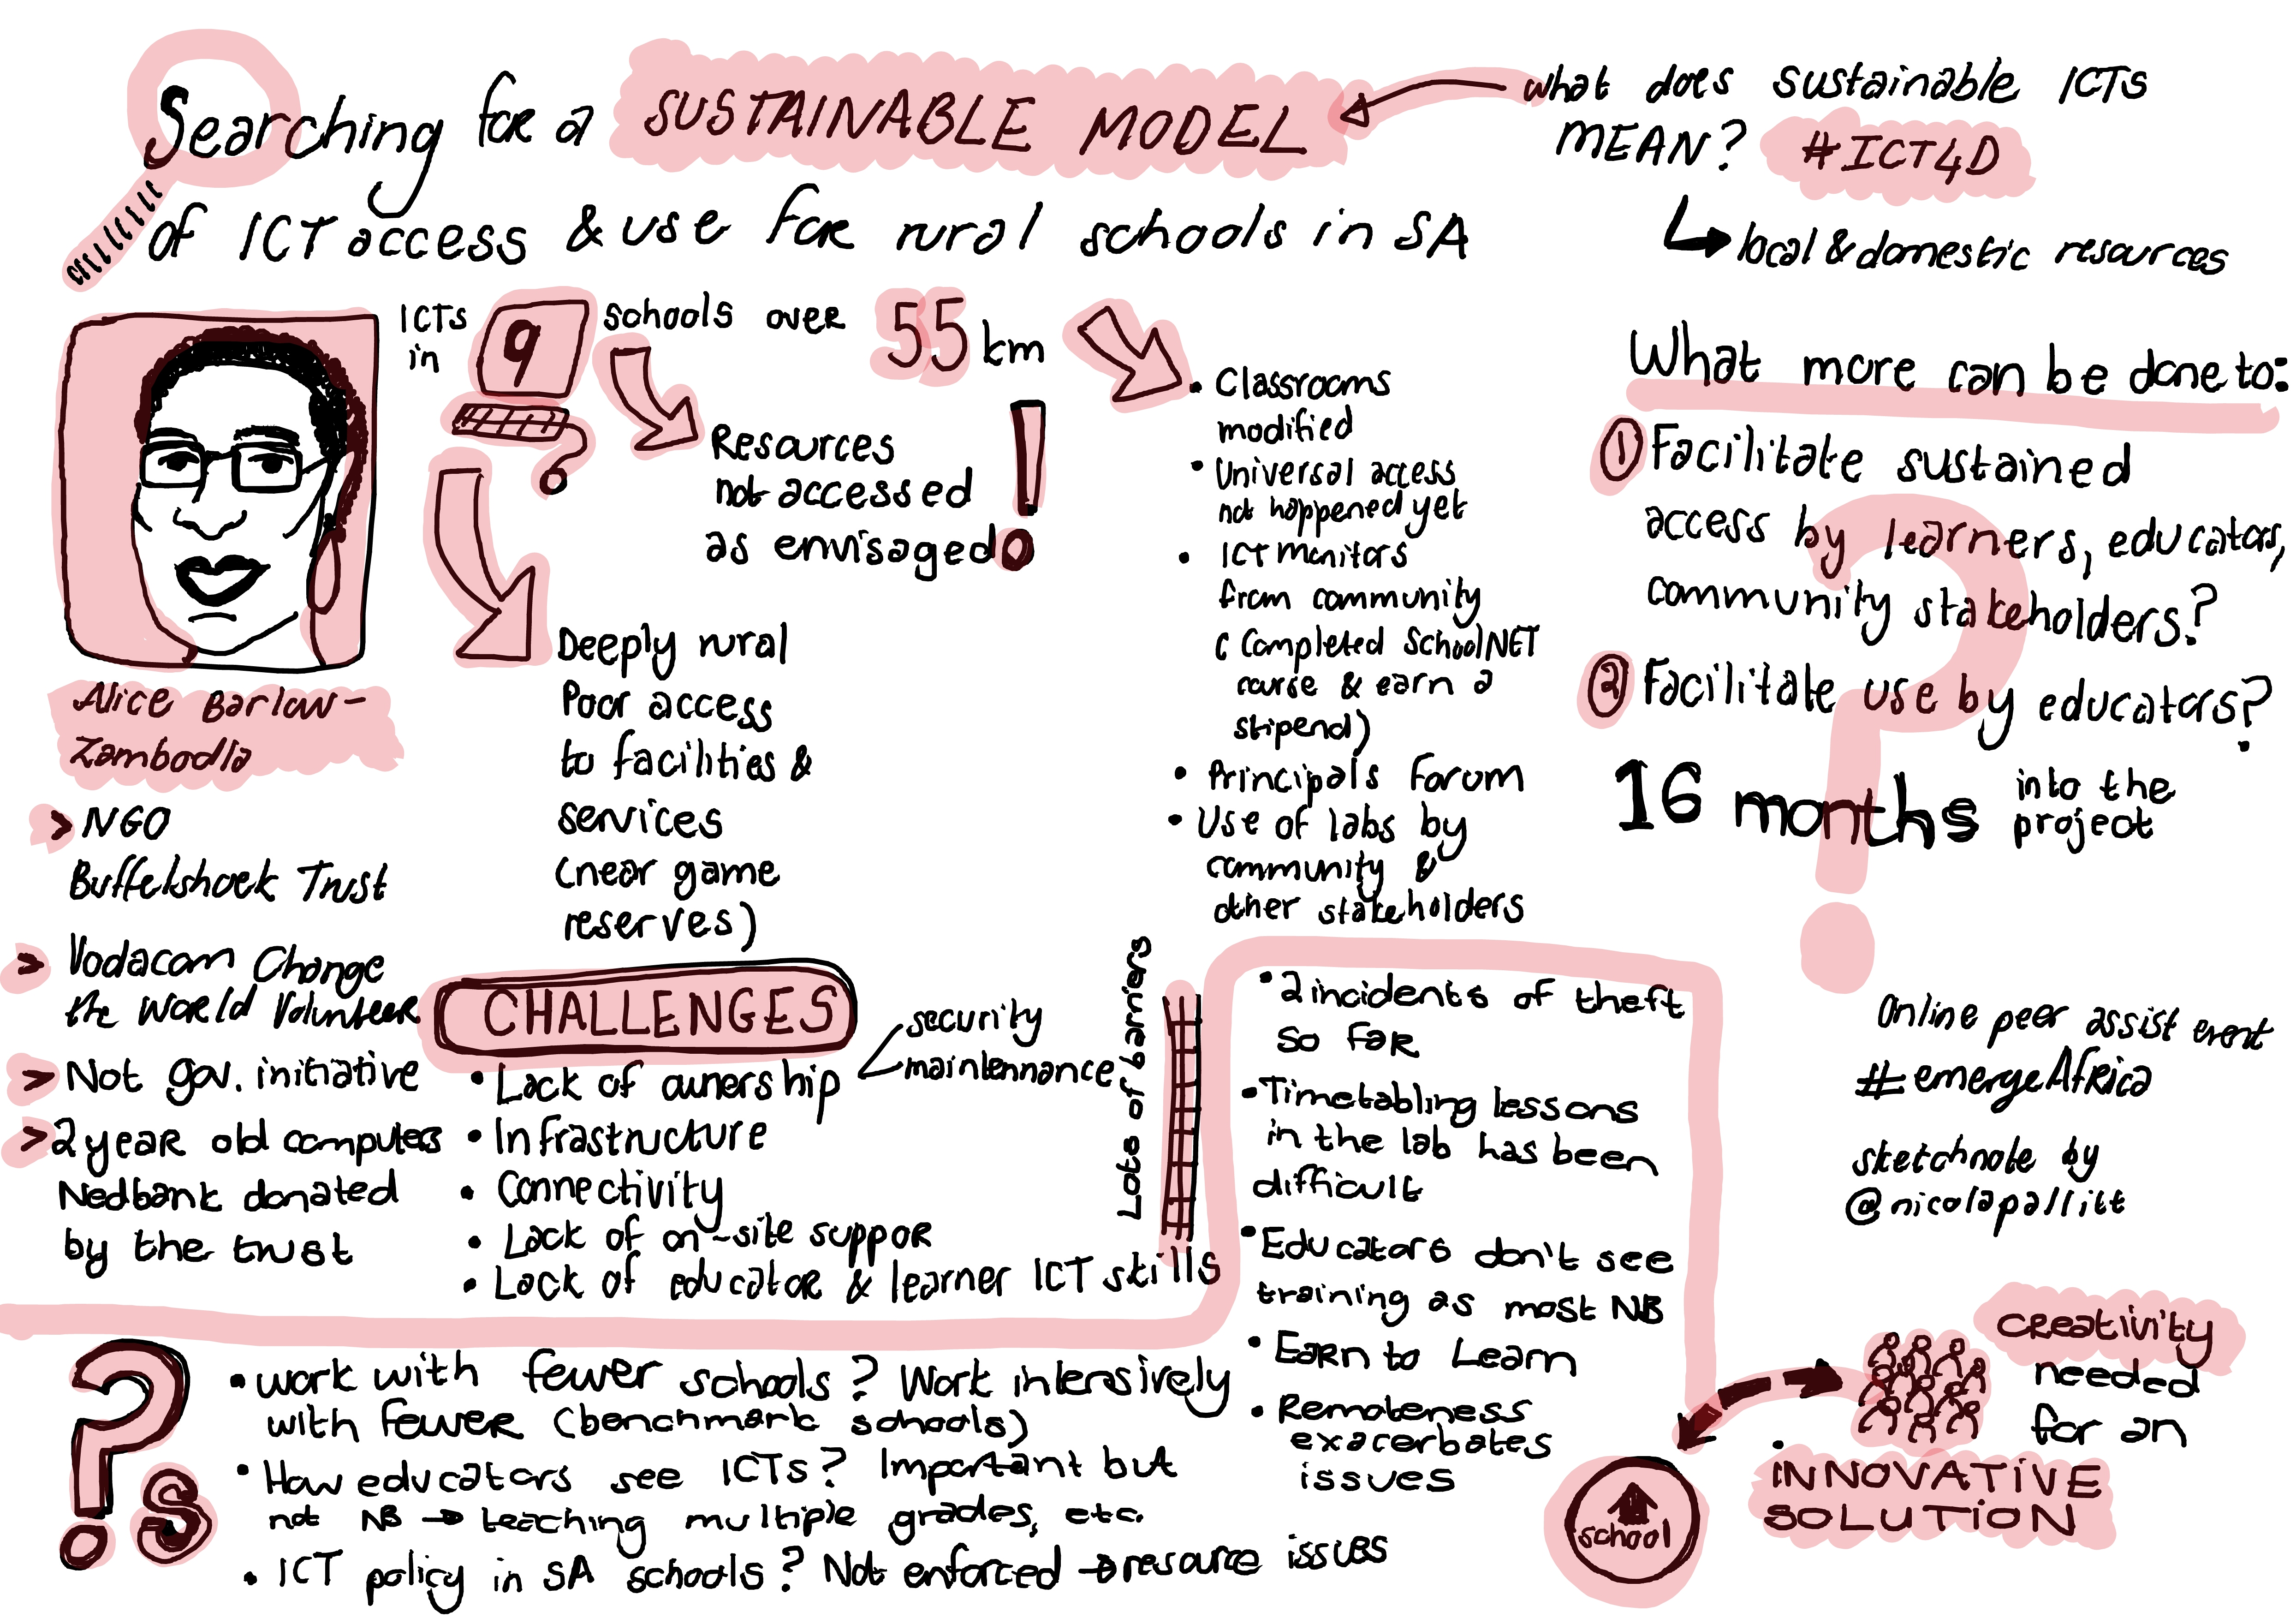 Searching for a SUSTAINABLE MODEL
of ICT access & use for rural schools in SA
what does sustainable ICTs
MEAN? #ICT4D
local & domestic resources
ICTs
in
9
schools over 55 km
Resources
not accessed
as envisaged!
Deeply rural
Poor access
to facilities &
services
(near game
reserves)
• Classrooms
modified
• Universal access
not happened yet
• ICT monitors
from community
( Completed SchoolNET
course & earn a
stipend)
• Principals Forum
• Use of labs by
community &
other stakeholders
What more can be done to:
① Facilitate sustained
access by learners, educators,
community stakeholders?
② Facilitate use by educators?
16 months into the
project
?
Alice Barlow-
Zambodla
> NGO
Buffelshoek Trust
> Vodacom Change
the World Volunteer
> Not gov. initiative
> 2 year old computers
Nedbank donated
by the trust
CHALLENGES
• Lack of ownership
security
maintennance
• Infrastructure
• Connectivity
• Lack of on-site suppor
• Lack of educator & learner ICT skills
Lots of barriers
• 2 incidents of theft
so far
• Timetabling lessons
in the lab has been
difficult
• Educators don't see
training as most NB
• Earn to Learn
• Remoteness
exacerbates
issues
?s
• work with fewer schools? Work intensively
with fewer (benchmark schools)
• How educators see ICTs? Important but
not NB → teaching multiple grades, etc.
• ICT policy in SA schools? Not enforced → resource issues
Online peer assist event
#emergeAfrica
sketchnote by
@nicolapallitt
school
creativity
needed
for an
INNOVATIVE
SOLUTION